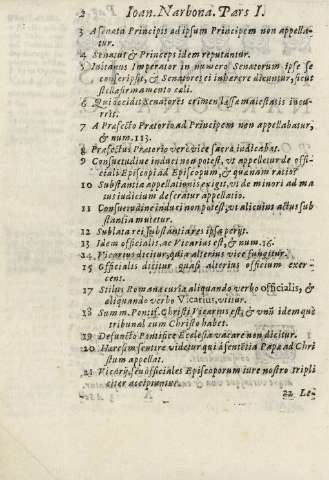 2 Ioan. Narbona. Pars I.
3 A Senata Principis ad ipsum Principem non appella-
tur.
4 Senatus & Princeps idem reputantur.
5 Initanus Imperator in numero Senatorum ipse se
conscripsit, & Senatores ei inhærere dicuntur, sicut
stellæ firmamento cæli.
6 Qui occidit Senatores crimen læsæ maiestatis incu-
rrit.
7 A Præfecto Prætorio ad Principem non appellabatur,
& num. 113.
8 Præfectus Prætorio vere vice sacra iudicabat.
9 Consuetudine induci non potest, vt appelletur de offi-
ciali Episcopi ad Episcopum, & quænam ratio?
10 Substantia appellationis exigit, vt de minori ad ma
ius iudicium deferatur appellatio.
11 Consuetudine induci non potest, vt alicuius actus sub
stantia mutetur.
12 Sublata rei substantia res ipsa perijt.
13 Idem officialis, ac Vicarius est, & num. 16.
14 Vicarius dicitur, qui alterius vice fungitur.
15 Officialis dicitur quasi alterius officium exer-
cens.
17 Stilus Romanæ curiæ aliquando verbo officialis, &
aliquando verbo Vicarius, vtitur.
18 Summ. Pontif. Christi Vicarius est, & vnũ idemque
tribunal cum Christo habet.
19 Defuncto Pontifice Ecclesia vacare non dicitur.
20 Hæresim sentire videtur qui à sentẽtia Papæ ad Chri
stum appellat.
21 Vicarij, seu officiales Episcoporum iure nostro tripli
citer accipiuntur.
22 Le-